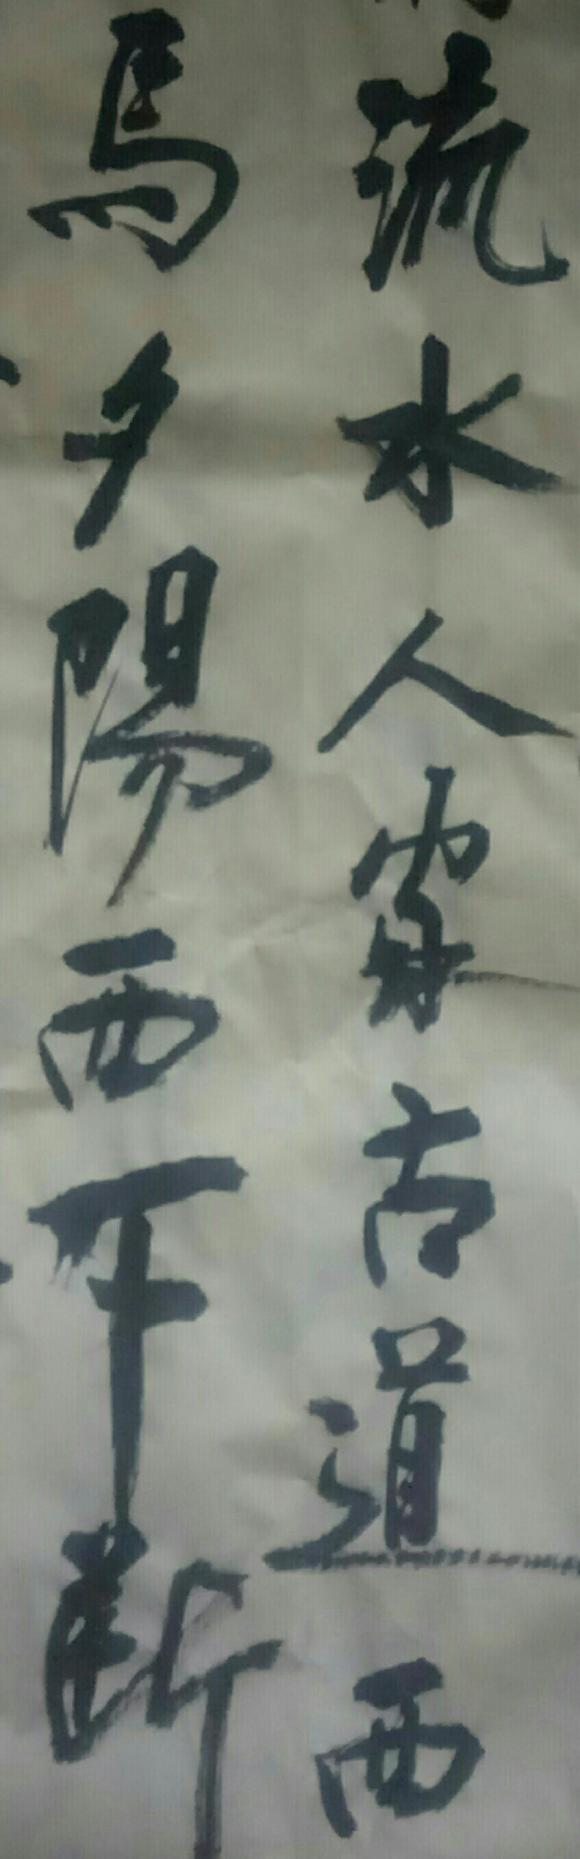 流水人家古道西
馬夕陽西下斷